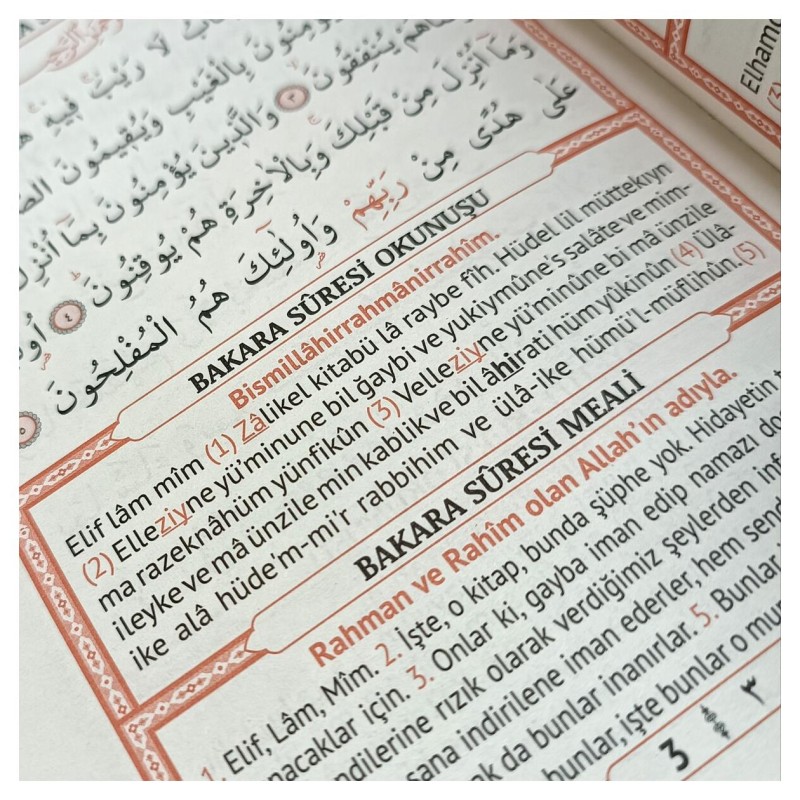 لَا رَيْبَ فِيهِ
يُؤْمِنُونَ بِالْغَيْبِ وَيُقِيمُونَ
يُنْفِقُونَ ٣ وَالَّذِينَ يُؤْمِنُونَ بِمَا أُنْزِلَ
وَمَا أُنْزِلَ مِنْ قَبْلِكَ وَبِالْاٰخِرَةِ هُمْ يُوقِنُونَ ٤
عَلٰى هُدًى مِنْ رَبِّهِمْ وَأُولٰئِكَ هُمُ الْمُفْلِحُونَ ٥
BAKARA SÛRESİ OKUNUŞU
Bismillâhirrahmânirrahîm.
Elif lâm mîm (1) Zâlikel kitabü lâ raybe fîh. Hüdel lil müttekıyn
(2) Elleziyne yü'minune bil ğaybi ve yukiymûne's salâte ve mim-
ma razeknâhüm yünfikûn (3) Velleziyne yü'minûne bi mâ ünzile
ileyke ve mâ ünzile min kablik ve bil âhirati hüm yûkinûn (4) Ülâ-
ike alâ hüde'm-mi'r rabbihim ve ülâ-ike hümü'l-müflihûn. (5)
BAKARA SÛRESİ MEALİ
Rahman ve Rahîm olan Allah'ın adıyla.
1. Elif, Lâm, Mîm. 2. İşte, o kitap, bunda şüphe yok. Hidayetin
için. 3. Onlar ki, gayba iman edip namazı
rızık olarak verdiğimiz şeylerden
sana indirilene iman ederler, hem
da bunlar inanırlar. 5. Bunlar,
bunlar, işte bunlar o
3 ٣
Elhamd